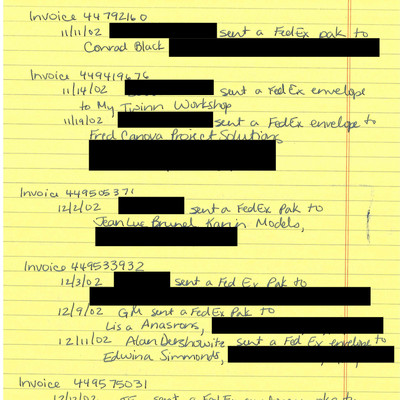 Invoice 44792160
11/11/02 sent a FedEx pak to
Conrad Black
Invoice 449419676
11/14/02 sent a FedEx envelope
to My Twinn Workshop
11/19/02 sent a FedEx envelope to
Fred Canova Project Solutions
Invoice 449505371
12/2/02 sent a FedEx Pak to
Jean Luc Brunel Karin Models,
Invoice 449533932
12/3/02 sent a Fed Ex Pak to
12/9/02 GM sent a FedEx Pak to
Lisa Anasrons,
12/11/02 Alan Dershowitz sent a Fed Ex envelope to
Edwina Simmonds,
Invoice 449575031